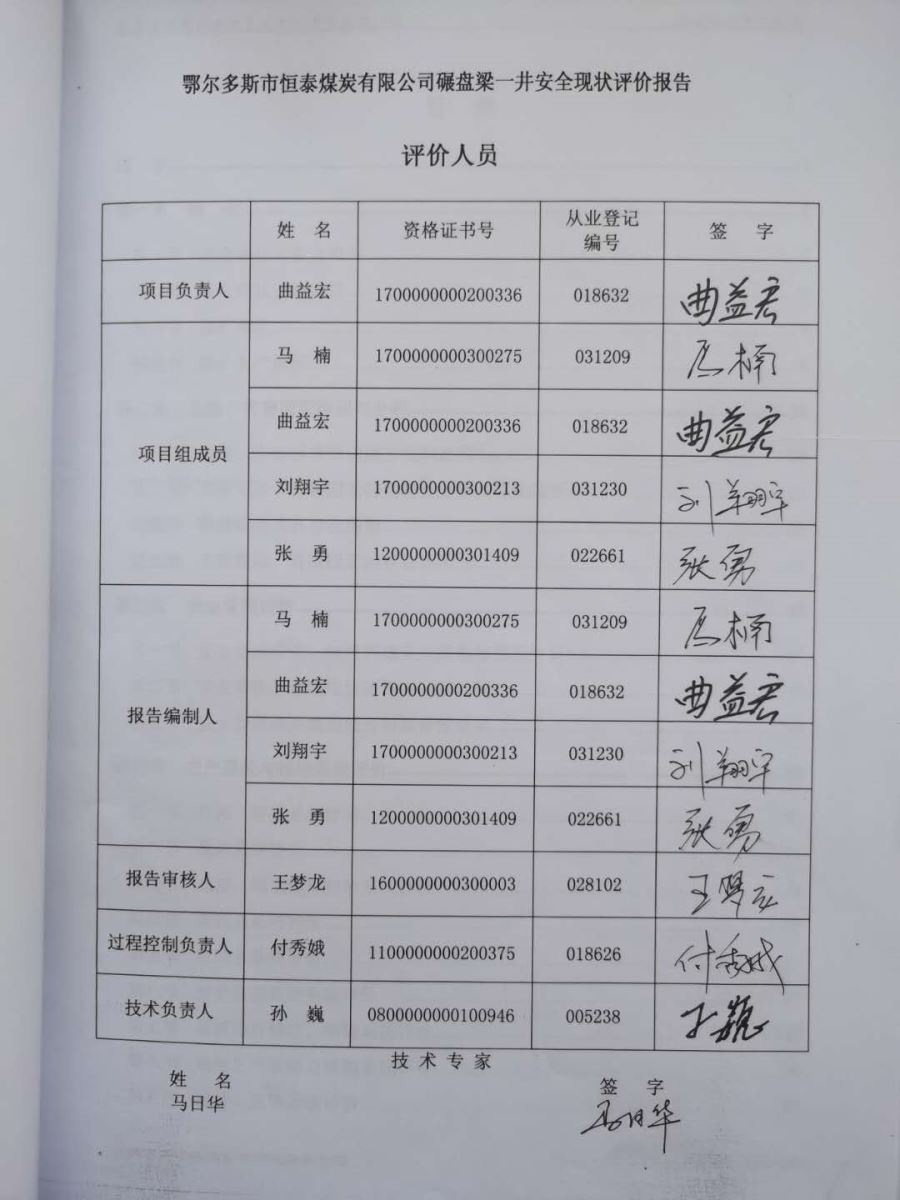 鄂尔多斯市恒泰煤炭有限公司碾盘梁一井安全现状评价报告
评价人员
姓 名 资格证书号 从业登记编号 签 字
项目负责人 曲益宏 1700000000200336 018632 曲益宏
项目组成员 马 楠 1700000000300275 031209 马楠
曲益宏 1700000000200336 018632 曲益宏
刘翔宇 1700000000300213 031230 刘翔宇
张 勇 1200000000301409 022661 张勇
报告编制人 马 楠 1700000000300275 031209 马楠
曲益宏 1700000000200336 018632 曲益宏
刘翔宇 1700000000300213 031230 刘翔宇
张 勇 1200000000301409 022661 张勇
报告审核人 王梦龙 1600000000300003 028102 王梦龙
过程控制负责人 付秀娥 1100000000200375 018626 付秀娥
技术负责人 孙 巍 0800000000100946 005238 孙巍
技 术 专 家
姓 名 签 字
马日华 马日华